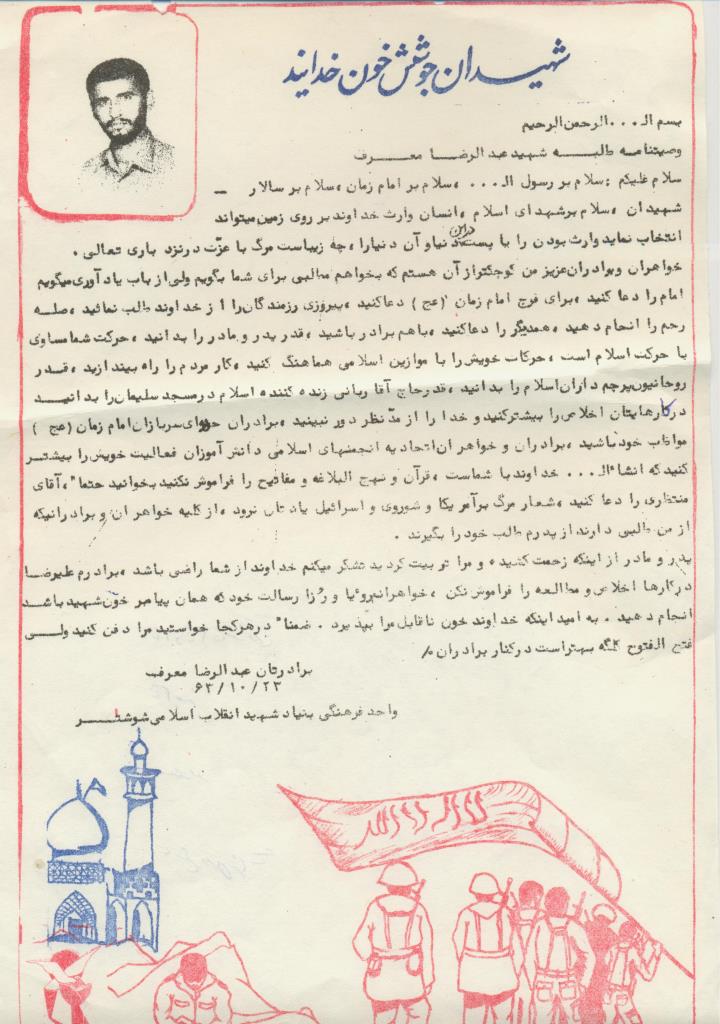 شهیدان جوشش خون خدایند
بسم الـ ... الرحمن الرحیم
وصیتنامه طلبه شهید عبدالرضا معرف
سلام علیکم : سلام بر رسول الـ ... ، سلام بر امام زمان ، سلام بر سالار
شهیدان ، سلام بر شهدای اسلام ، انسان وارث خداوند بر روی زمین میتواند
انتخاب نماید وارث بودن را یا پست دراین دنیا و آن دنیا را ، چه زیباست مرگ با عزّت در نزد باری تعالی .
خواهران و برادران عزیز من کوچکتر از آن هستم که بخواهم مطالبی برای شما بگویم ولی از باب یادآوری میگویم
امام را دعا کنید ، برای فرج امام زمان (عج) دعا کنید ، پیروزی رزمندگان را از خداوند طلب نمائید ، صله
رحم را انجام دهید ، همدیگر را دعا کنید ، باهم برادر باشید ، قدر پدر و مادر را بدانید ، حرکت شما مساوی
با حرکت اسلام است ، حرکات خویش را با موازین اسلامی هماهنگ کنید ، کار مردم را راه بیندازید ، قدر
روحانیون پرچم داران اسلام را بدانید ، قدر حاج آقا ربانی زنده کننده اسلام در مسجد سلیمان را بدانید
در کارهایتان اخلاص را بیشتر کنید و خدا را از مدّ نظر دور نبینید ، برادران سربازان امام زمان (عج)
مواظب خود باشید ، برادران و خواهران اتحادیه انجمنهای اسلامی دانش آموزان فعالیت خویش را بیشتر
کنید که انشاء الـ ... خداوند با شماست ، قرآن و نهج البلاغه و مفاتیح را فراموش نکنید بخوانید حتما" ، آقای
منتظری را دعا کنید ، شعار مرگ بر آمریکا و شوروی و اسرائیل یادتان نرود ، از کلیه خواهران و برادرانیکه
از من طلبی دارند از پدرم طلب خود را بگیرند .
پدر و مادر از اینکه زحمت کشیده و مرا تربیت کردید تشکر میکنم خداوند از شما راضی باشد ، برادرم علیرضا
در کارها اخلاص و مطالعه را فراموش نکن ، خواهرانم رؤیا و رُزا رسالت خود که همان پیامبر خون شهید باشد
انجام دهید . به امید اینکه خداوند خون ناقابل مرا بپذیرد . ضمنا" در هر کجا خواستید مرا دفن کنید ولی
فتح الفتوح گلگه بهتر است در کنار برادران /
برادرتان عبدالرضا معرف
۶۳/۱۰/۲۳
واحد فرهنگی بنیاد شهید انقلاب اسلامی شوشتر
لا اله الا الله